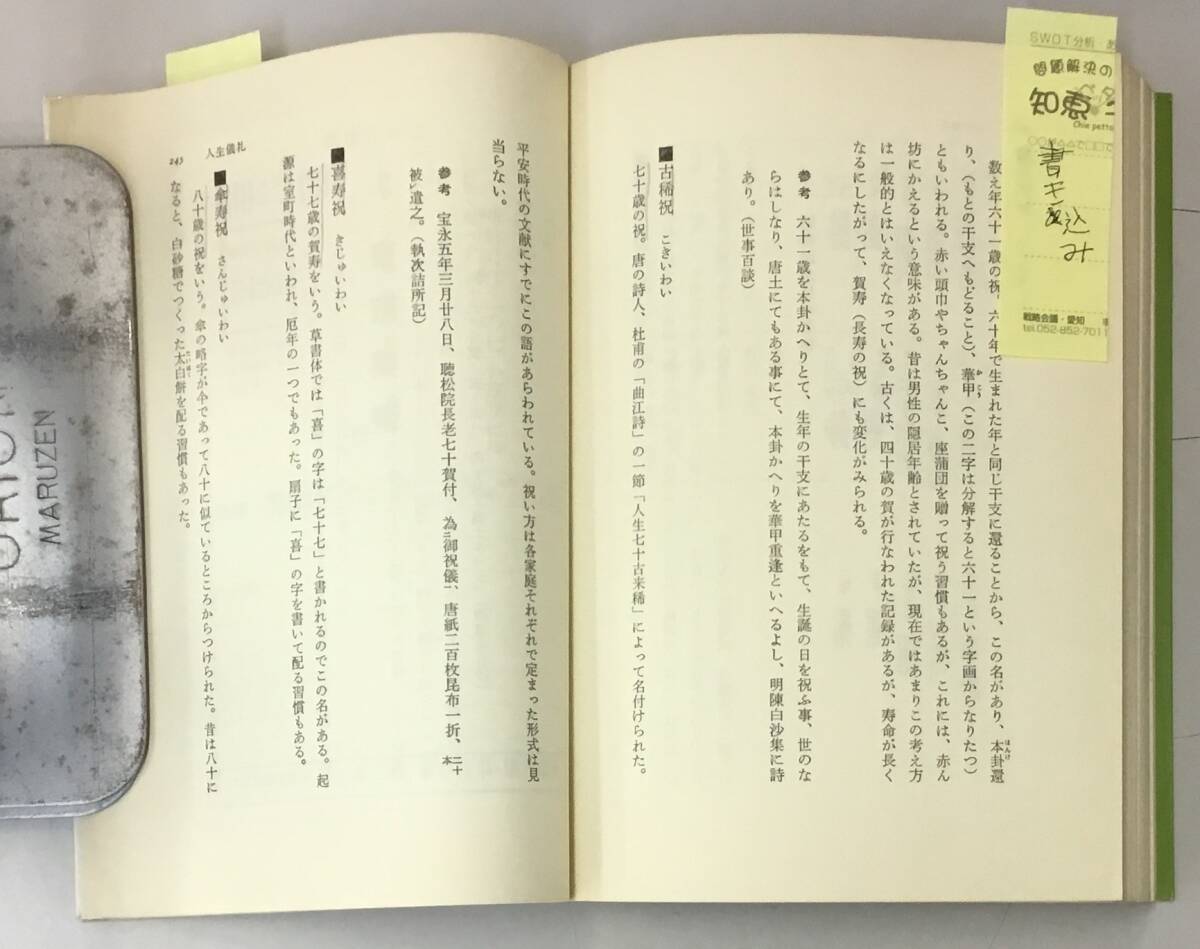 数え年六十一歳の祝。六十年で生まれた年と同じ干支に還ることから、この名があり、本卦還
ほんけ
り、(もとの干支へもどること)、華甲(この二字は分解すると六十一という字画からなりたつ)
かこう
ともいわれる。赤い頭巾やちゃんちゃんこ、座蒲団を贈って祝う習慣もあるが、これには、赤ん
坊にかえるという意味がある。昔は男性の隠居年齢とされていたが、現在ではあまりこの考え方
は一般的とはいえなくなっている。古くは、四十歳の賀が行なわれた記録があるが、寿命が長く
なるにしたがって、賀寿(長寿の祝)にも変化がみられる。
参考 六十一歳を本卦かへりとて、生年の干支にあたるをもて、生誕の日を祝ふ事、世のな
らはしなり、唐土にてもある事にて、本卦かへりを華甲重逢といへるよし、明陳白沙集に詩
あり。(世事百談)
■古稀祝 こきいわい
七十歳の祝。唐の詩人、杜甫の「曲江詩」の一節「人生七十古来稀」によって名付けられた。
平安時代の文献にすでにこの語があらわれている。祝い方は各家庭それぞれで定まった形式は見
当らない。
参考 宝永五年三月廿八日、聴松院長老七十賀付、為二御祝儀一、唐紙二百枚昆布一折、二十本
被レ遣之。(執次詰所記)
■喜寿祝 きじゅいわい
七十七歳の賀寿をいう。草書体では「喜」の字は「七十七」と書かれるのでこの名がある。起
源は室町時代といわれ、厄年の一つでもあった。扇子に「喜」の字を書いて配る習慣もある。
■傘寿祝 さんじゅいわい
八十歳の祝をいう。傘の略字が仐であって八十に似ているところからつけられた。昔は八十に
なると、白砂糖でつくった太白餅を配る習慣もあった。
人生儀礼
245
SWOT分析・あ
問題解決の
知恵
Chie petta
○○が△△で□□で
書き込み
戦略会議・愛知
tel.052-852-7011
MARUZEN